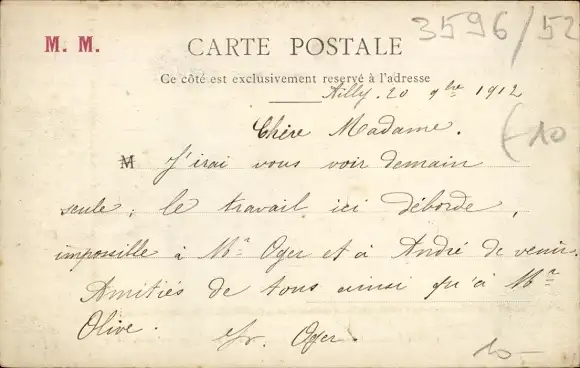 3596/52
M. M.
CARTE POSTALE
Ce côté est exclusivement reservé à l'adresse
Ailly. 20 9bre 1912
Chère Madame.
(-10
M J'irai vous voir demain
seule; le travail ici déborde,
impossille à Mr Oger et à André de venir.
Amitiés de tous ainsi qu'à Mr
Olive.
Yr. Oger.
10-